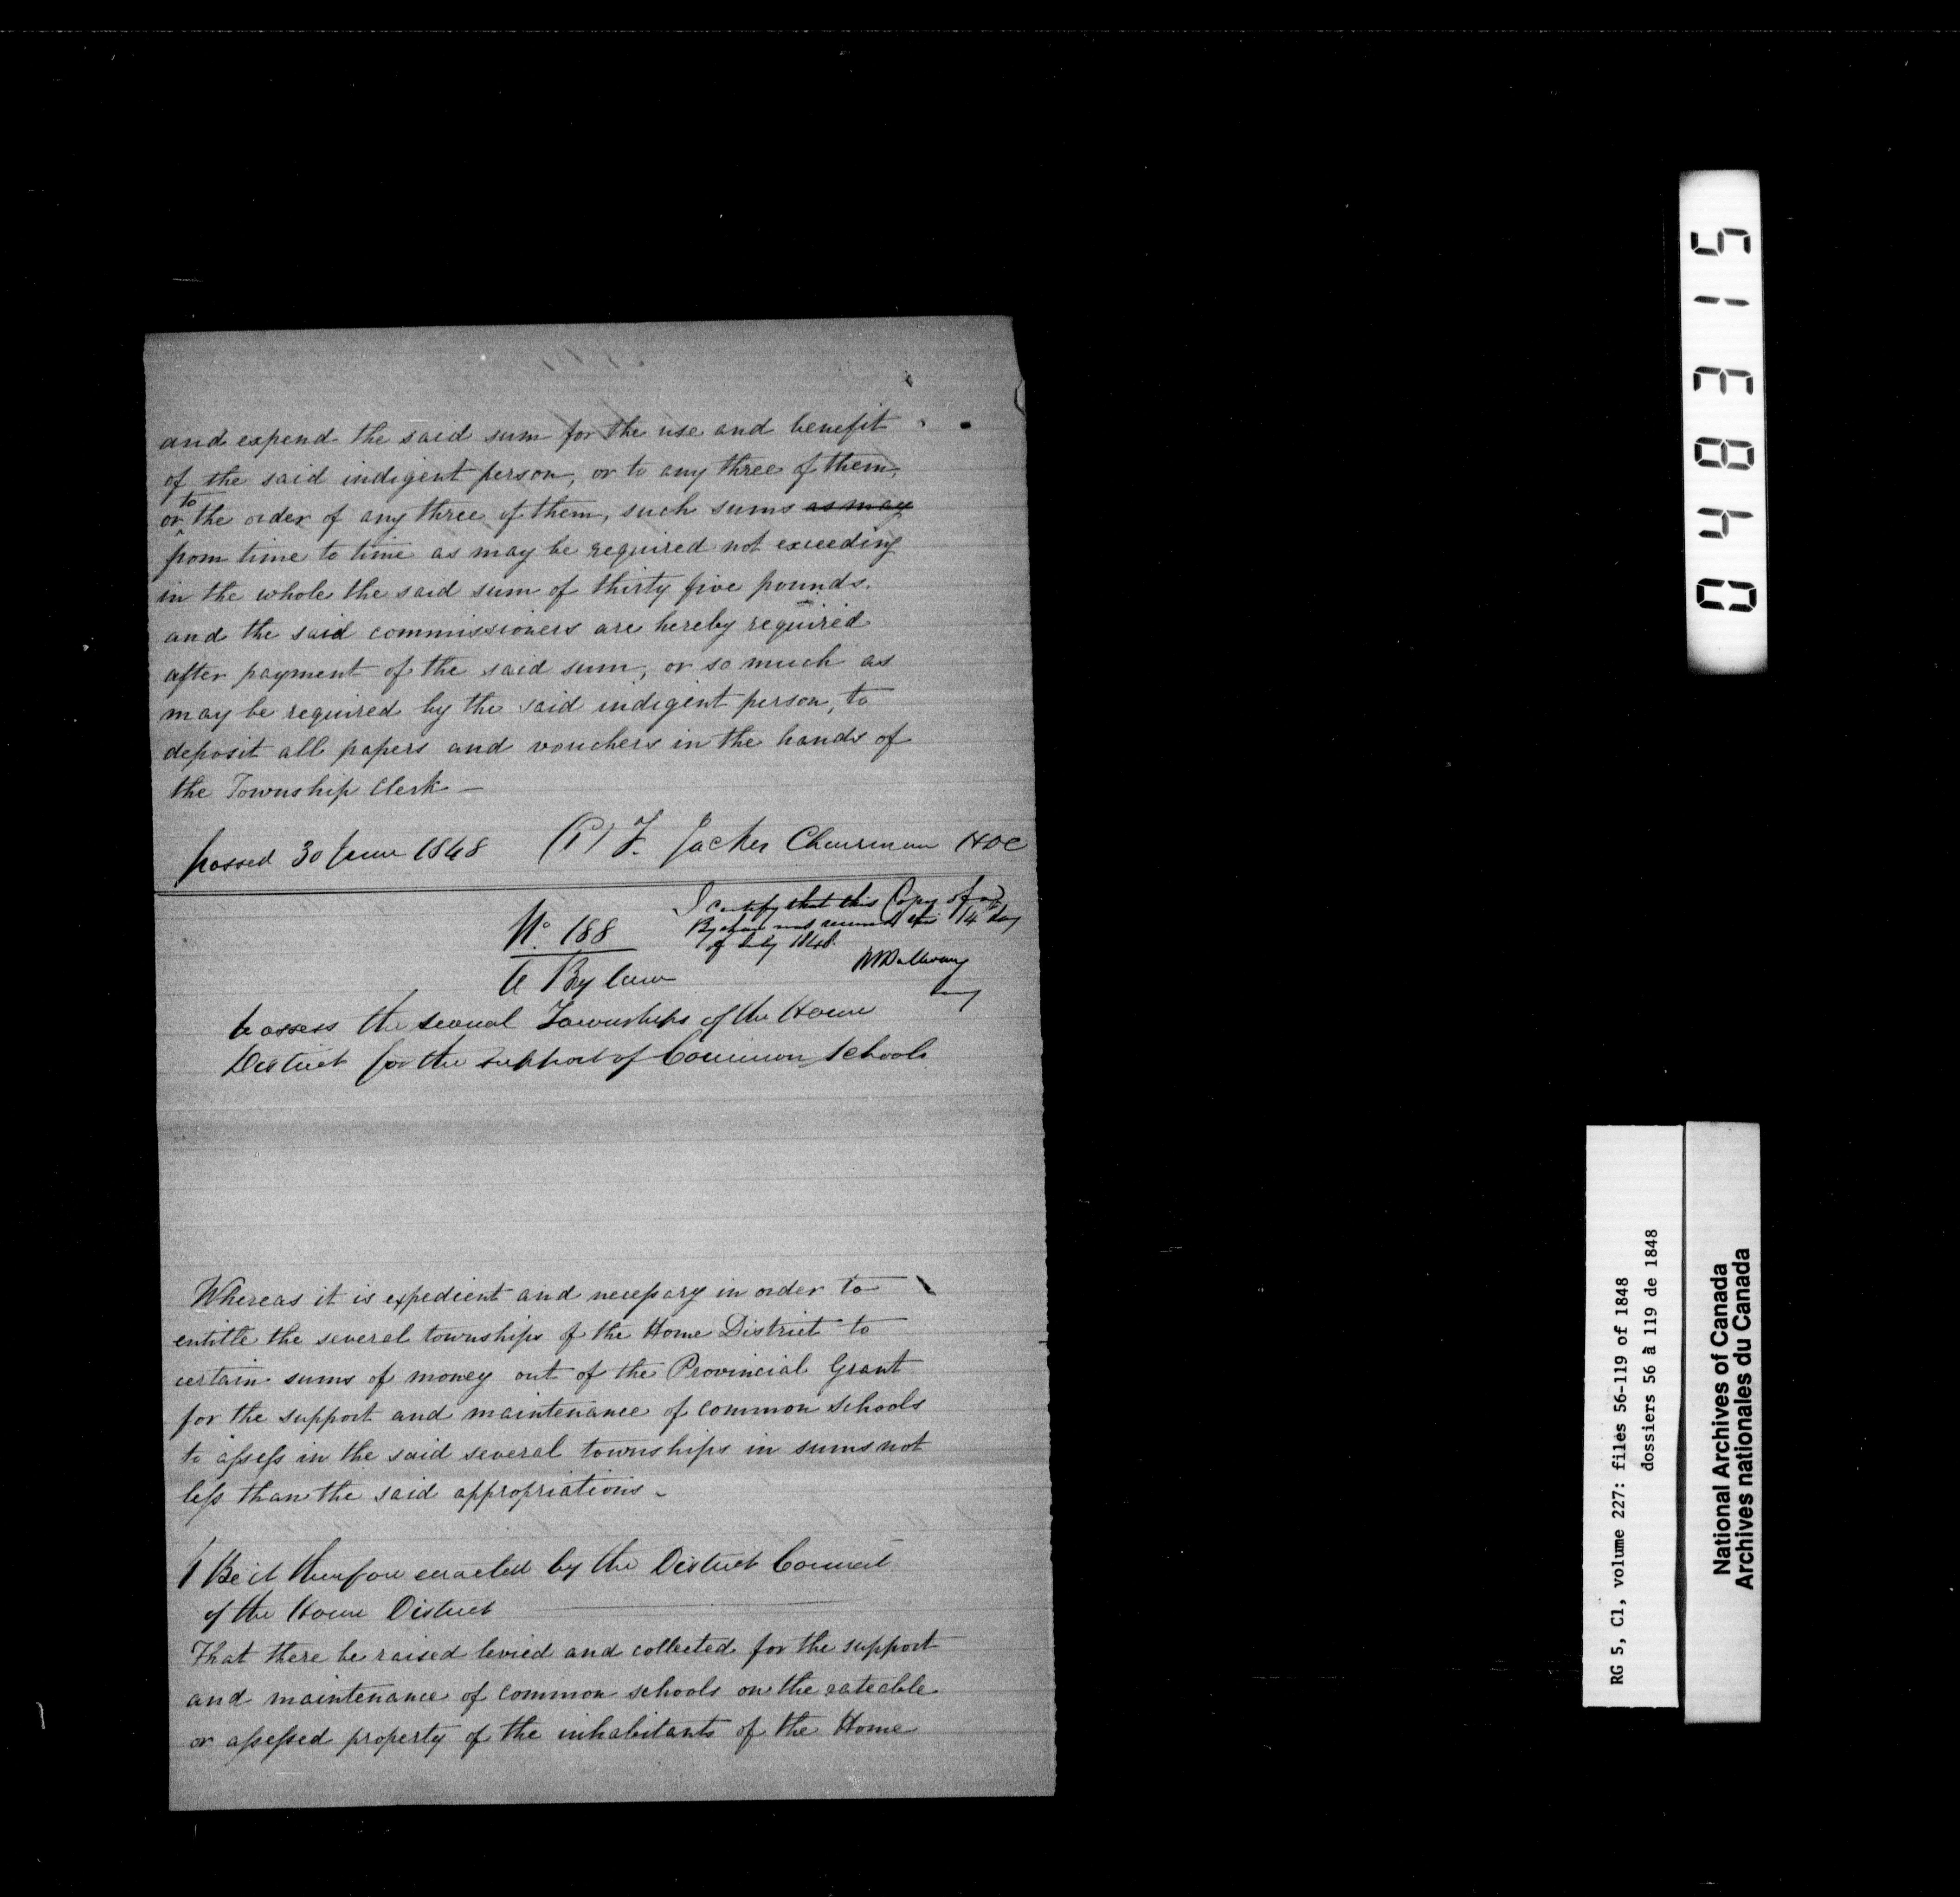 and expend the said sum for the use and benefit
of the said indigent person, or to any three of them,
to
or the order of any three of them, such sums as may
from time to time as may be required not exceeding
in the whole the said sum of thirty five pounds.
and the said commissioners are hereby required
after payment of the said sum, or so much as
may be required by the said indigent person, to
deposit all papers and vouchers in the hands of
the Township Clerk —
passed 30 June 1848 F. Jackes Chairman HDC
I certify that this Copy of a
By law was received this 14th day
of July 1848.
No. 188
A By law
to assess the several Townships of the Home
District for the support of Common Schools
Whereas it is expedient and necessary in order to
entitle the several townships of the Home District to
certain sums of money out of the Provincial Grant
for the support and maintenance of common schools
to assess in the said several townships in sums not
less than the said appropriations -
1 Be it therefore enacted by the District Council
of the Home District
That there be raised levied and collected for the support
and maintenance of common schools on the rateable
or assessed property of the inhabitants of the Home
048315
RG 5, C1, volume 227: files 56-119 of 1848
dossiers 56 à 119 de 1848
National Archives of Canada
Archives nationales du Canada